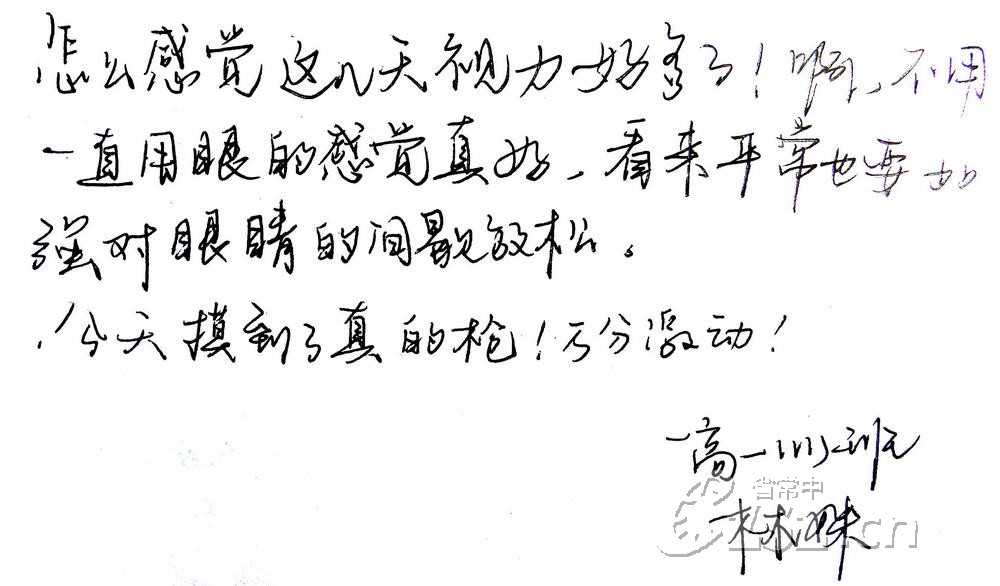 怎么感觉这几天视力好多了！啊，不用
一直用眼的感觉真好，看来平常也要加
强对眼睛的间歇放松。
今天摸到了真的枪！万分激动！
高一(11)班
省常中
林